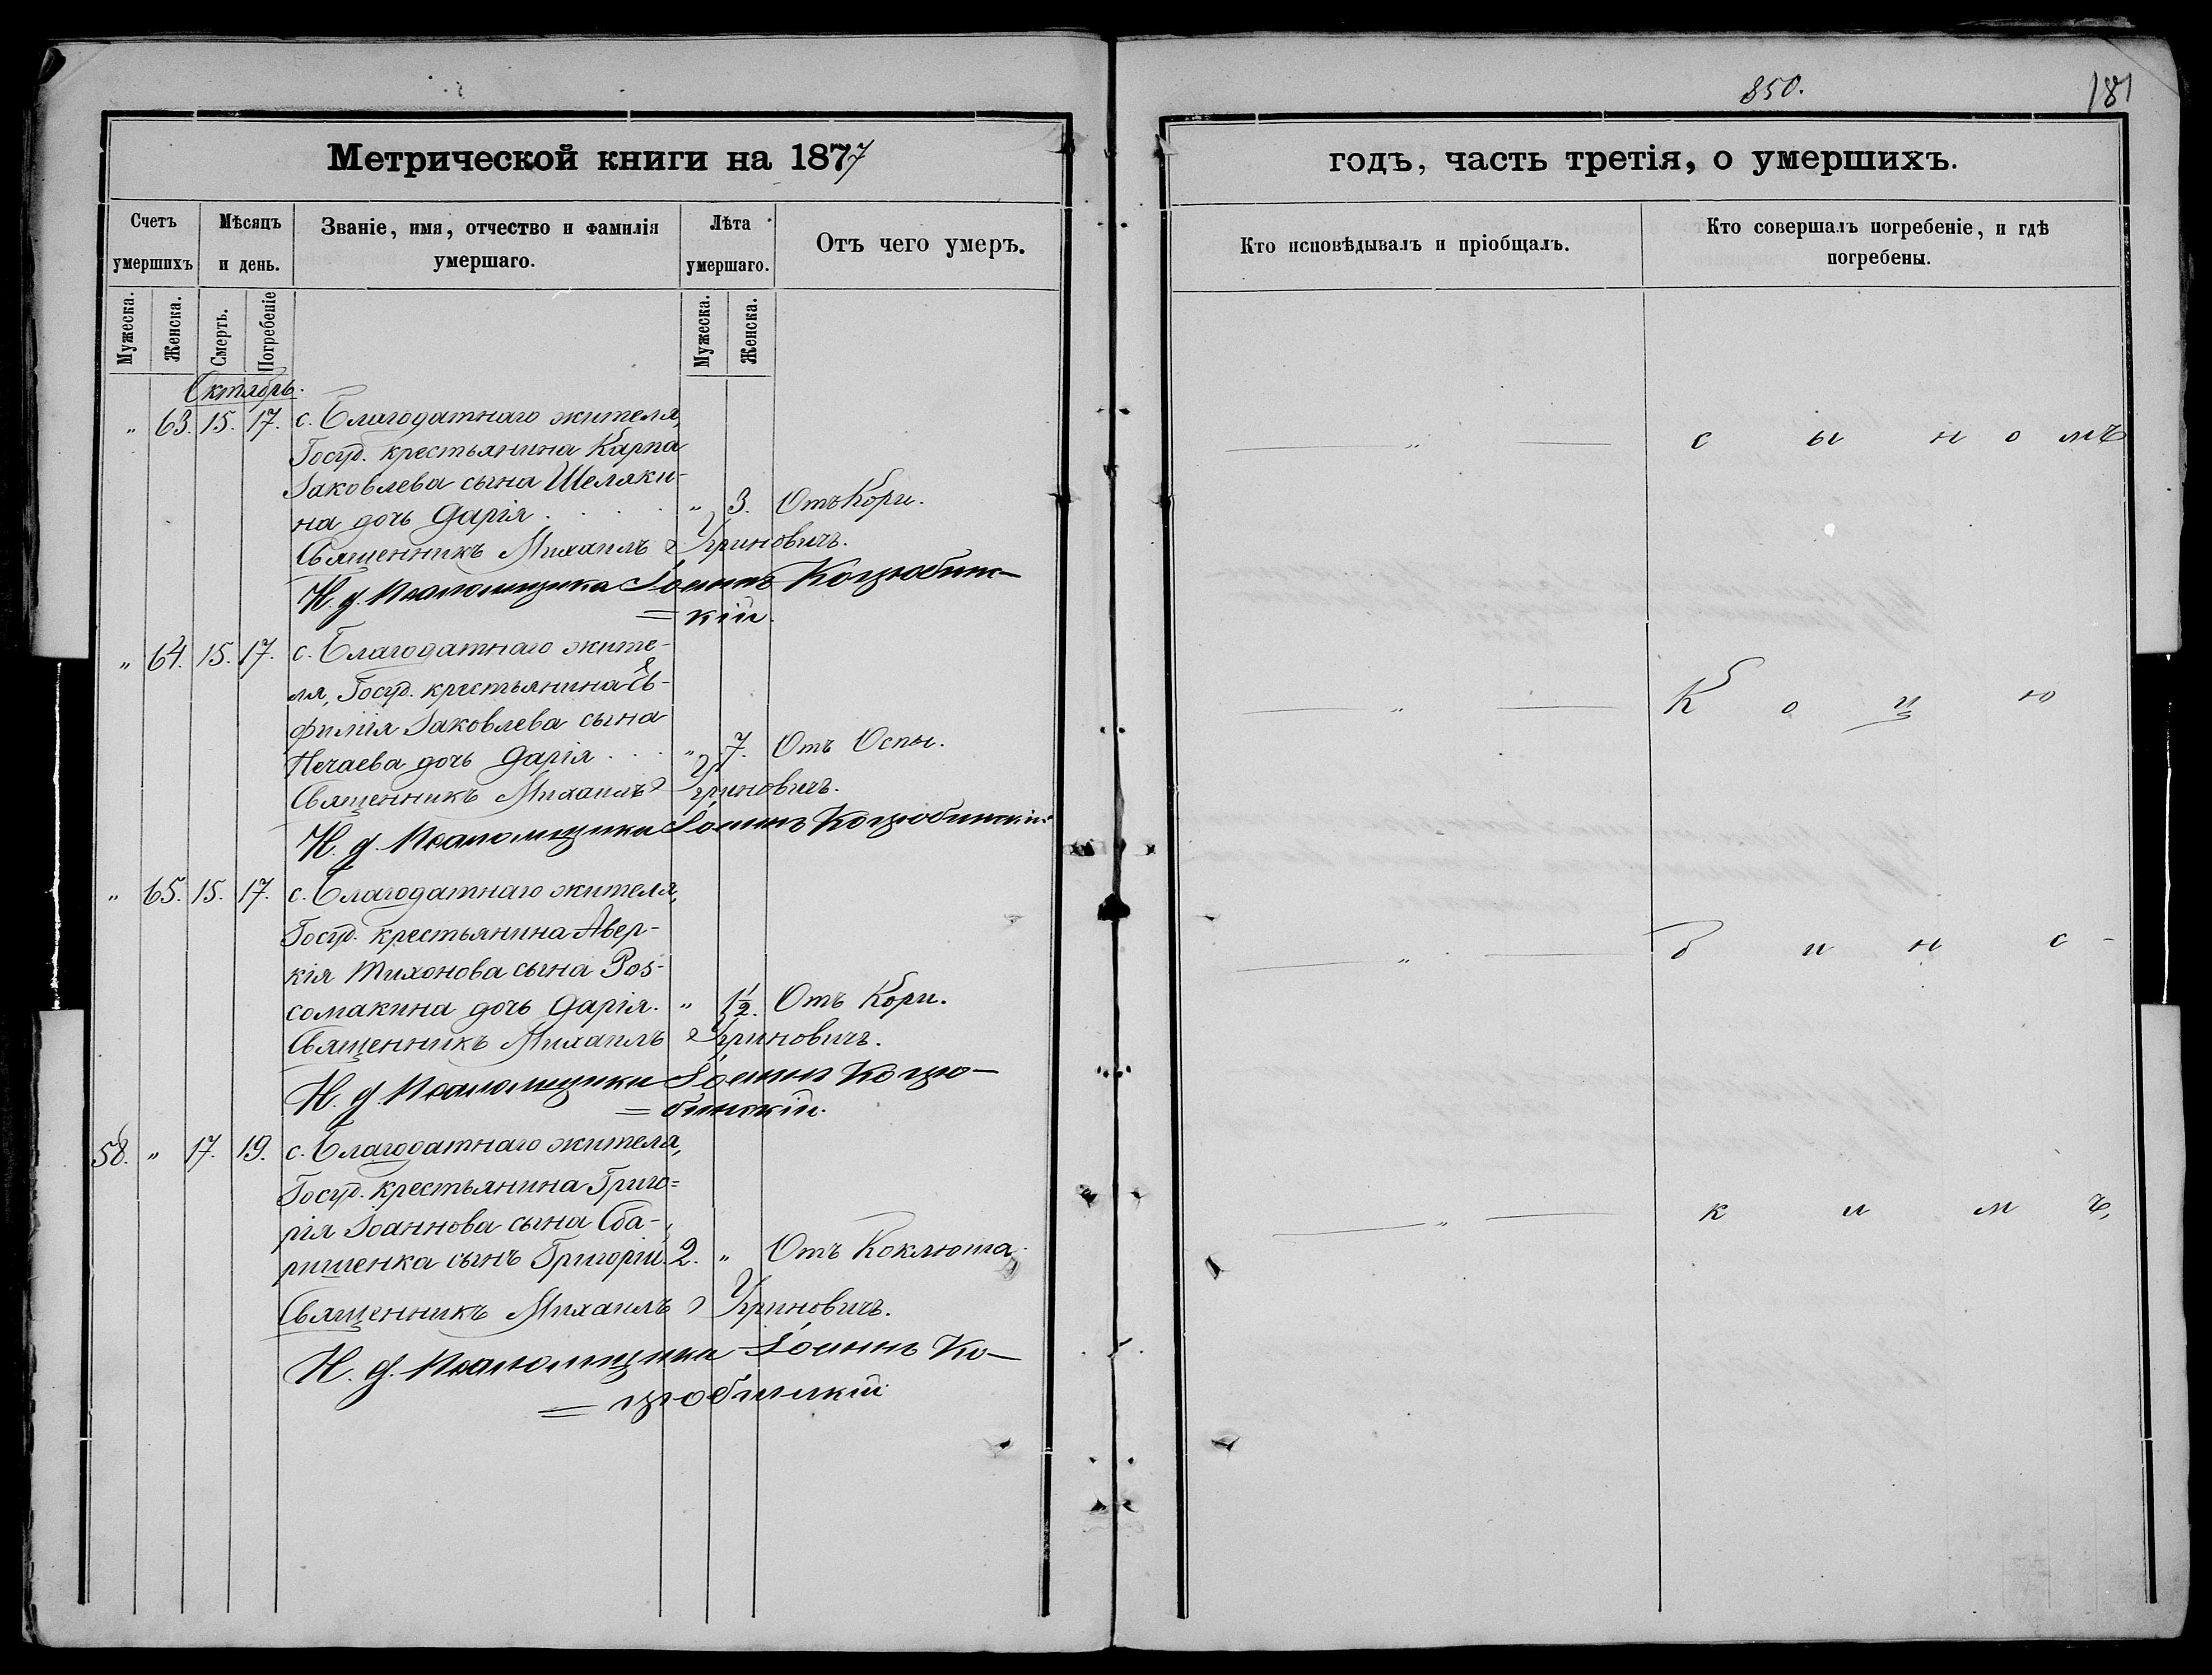 850.
181
Метрической книги на 1877
годъ, часть третія, о умершихъ.
Счетъ умершихъ
Мѣсяцъ и день.
Званіе, имя, отчество и фамилія умершаго.
Лѣта умершаго.
Отъ чего умеръ.
Кто исповѣдывалъ и пріобщалъ.
Кто совершалъ погребеніе, и гдѣ погребены.
Мужеска.
Женска.
Смерть.
Погребеніе
Мужеска.
Женска.
Октябрь.
„ 63. 15. 17. с. Благодатнаго жителя,
Госуд. крестьянина Карпа
Іаковлева сына Шеляки-
на дочь Дарія . . . . „ 3. Отъ Кори.
— „ — с ы н о мъ
Священникъ Михаилъ Угриновичъ.
И. д. Псаломщика Іоаннъ Коцюбинс-
= кій.
„ 64. 15. 17. с. Благодатнаго жите-
ля, Госуд. крестьянина Ев-
фимія Іаковлева сына
Нечаева дочь Дарія . . . „ 7. Отъ Оспы.
— „ — К о ц ю
Священникъ Михаилъ Угриновичъ.
И. д. Псаломщика Іоаннъ Коцюбинскій
„ 65. 15. 17. с. Благодатнаго жителя,
Госуд. крестьянина Авер-
кія Тихонова сына Рос-
сомакина дочь Дарія. „ 1½. Отъ Кори.
— „ — б и н с -
Священникъ Михаилъ Угриновичъ.
И. д. Псаломщика Іоаннъ Коцю-
= бинскій.
58. „ 17. 19. с. Благодатнаго жителя,
Госуд. крестьянина Григо=
рія Іоаннова сына Сба-
ришенка сынъ Григорій. 2. „ Отъ Коклюша.
— „ — к и м ъ,
Священникъ Михаилъ Угриновичъ.
И. д. Псаломщика Іоаннъ Ко-
= цюбинскій